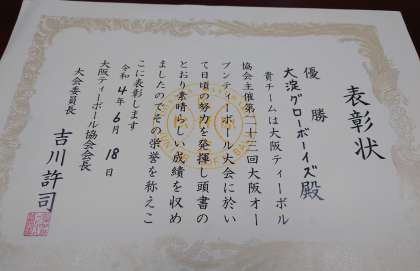 表彰状
優勝
大淀グローボーイズ殿
貴チームは大阪ティーボール
協会主催第二十三回大阪オー
プンティーボール大会に於い
て日頃の努力を発揮し頭書の
とおり素晴らしい成績を収め
ましたのでその栄誉を称えこ
こに表彰します
令和4年6月18日
大阪ティーボール協会会長
大会委員長
吉川許司